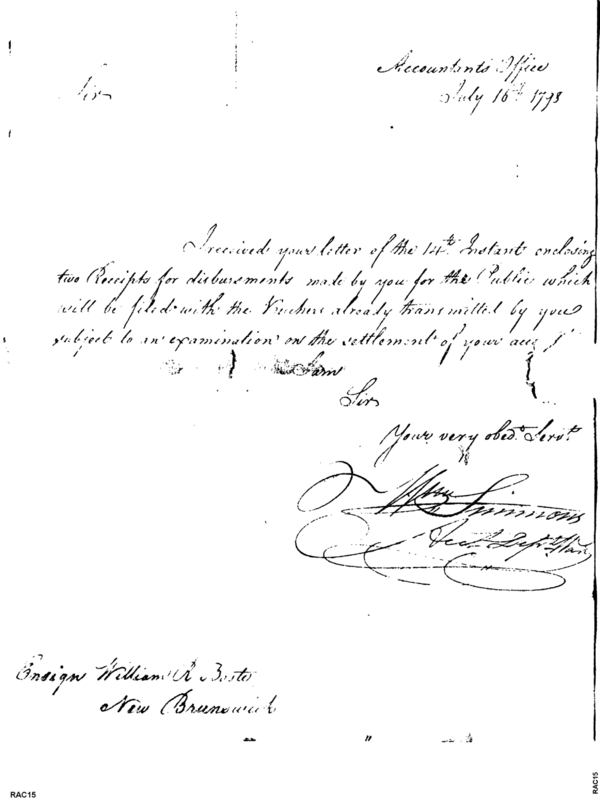 Accountants Office
Sir
July 16th 1798
I received your letter of the 14th Instant enclosing
two Receipts for disbursments made by you for the Public which
will be filed with the Vouchers already transmitted by you
subject to an examination on the settlement of your acc
I am
Sir
Your very obedt Servt
Wm Simmons
Acct Dept War
Ensign William R
New Brunswick
RAC15
RAC15